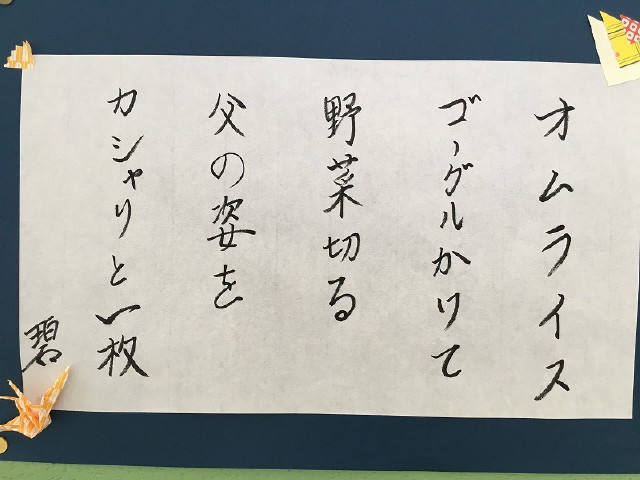 オムライス
ゴーグルかりて
野菜切る
父の姿を
カシャリと一枚
碧